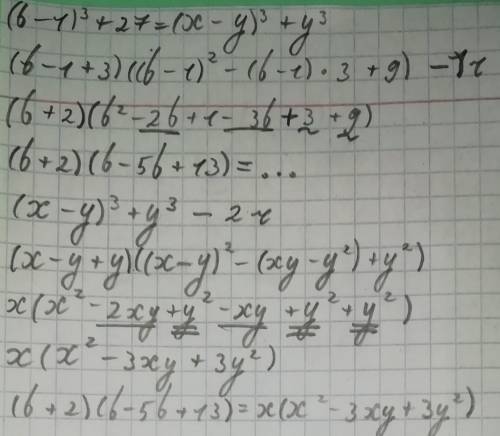 (b-1)³+27=(x-y)³+y³
(b-1+3)((b-1)²-(b-1)·3+9) -1ч
(b+2)(b²-2b+1-3b+3+9)
(b+2)(b-5b+13)=...
(x-y)³+y³ - 2ч
(x-y+y)((x-y)²-(xy-y²)+y²)
x(x²-2xy+y²-xy+y²+y²)
x(x²-3xy+3y²)
(b+2)(b-5b+13)=x(x²-3xy+3y²)